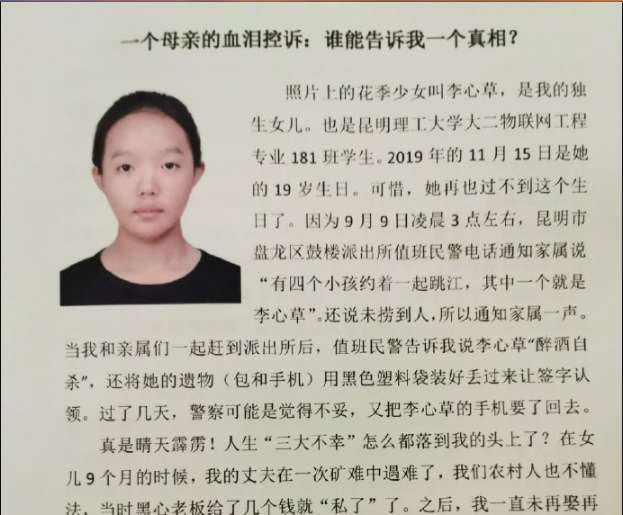 一个母亲的血泪控诉：谁能告诉我一个真相？
照片上的花季少女叫李心草，是我的独
生女儿。也是昆明理工大学大二物联网工程
专业 181 班学生。2019 年的 11 月 15 日是她
的 19 岁生日。可惜，她再也过不到这个生
日了。因为 9 月 9 日凌晨 3 点左右，昆明市
盘龙区鼓楼派出所值班民警电话通知家属说
“有四个小孩约着一起跳江，其中一个就是
李心草”。还说未捞到人，所以通知家属一声。
当我和亲属们一起赶到派出所后，值班民警告诉我说李心草“醉酒自
杀”，还将她的遗物（包和手机）用黑色塑料袋装好丢过来让签字认
领。过了几天，警察可能是觉得不妥，又把李心草的手机要了回去。
真是晴天霹雳！人生“三大不幸”怎么都落到我的头上了？在女
儿 9 个月的时候，我的丈夫在一次矿难中遇难了，我们农村人也不懂
法，当时黑心老板给了几个钱就“私了”了。之后，我一直未再娶再